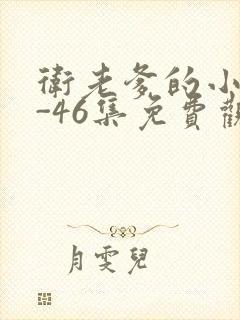 衛老爹的小
-46集免費觀
月雯兒